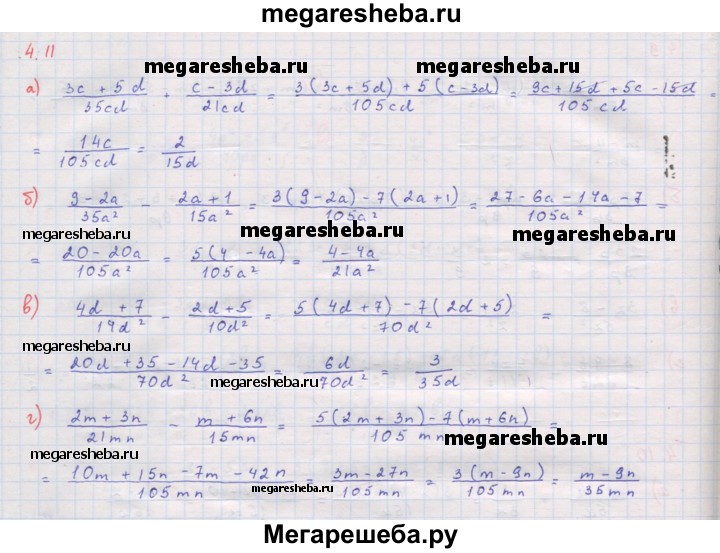 megaresheba.ru
4.11
megaresheba.ru megaresheba.ru
а) (3c + 5d)/(35cd) + (c - 3d)/(21cd) = (3(3c + 5d) + 5(c - 3d))/(105cd) = (9c + 15d + 5c - 15d)/(105cd) =
= (14c)/(105cd) = 2/(15d)
б) (9 - 2a)/(35a²) - (2a + 1)/(15a²) = (3(9 - 2a) - 7(2a + 1))/(105a²) = (27 - 6a - 14a - 7)/(105a²) =
megaresheba.ru megaresheba.ru megaresheba.ru
= (20 - 20a)/(105a²) = (5(4 - 4a))/(105a²) = (4 - 4a)/(21a²)
в) (4d + 7)/(14d²) - (2d + 5)/(10d²) = (5(4d + 7) - 7(2d + 5))/(70d²) =
megaresheba.ru
= (20d + 35 - 14d - 35)/(70d²) = (6d)/(70d²) = 3/(35d)
megaresheba.ru
г) (2m + 3n)/(21mn) - (m + 6n)/(15mn) = (5(2m + 3n) - 7(m + 6n))/(105mn) =
megaresheba.ru megaresheba.ru
= (10m + 15n - 7m - 42n)/(105mn) = (3m - 27n)/(105mn) = (3(m - 9n))/(105mn) = (m - 9n)/(35mn)
megaresheba.ru
Мегарешеба.ру